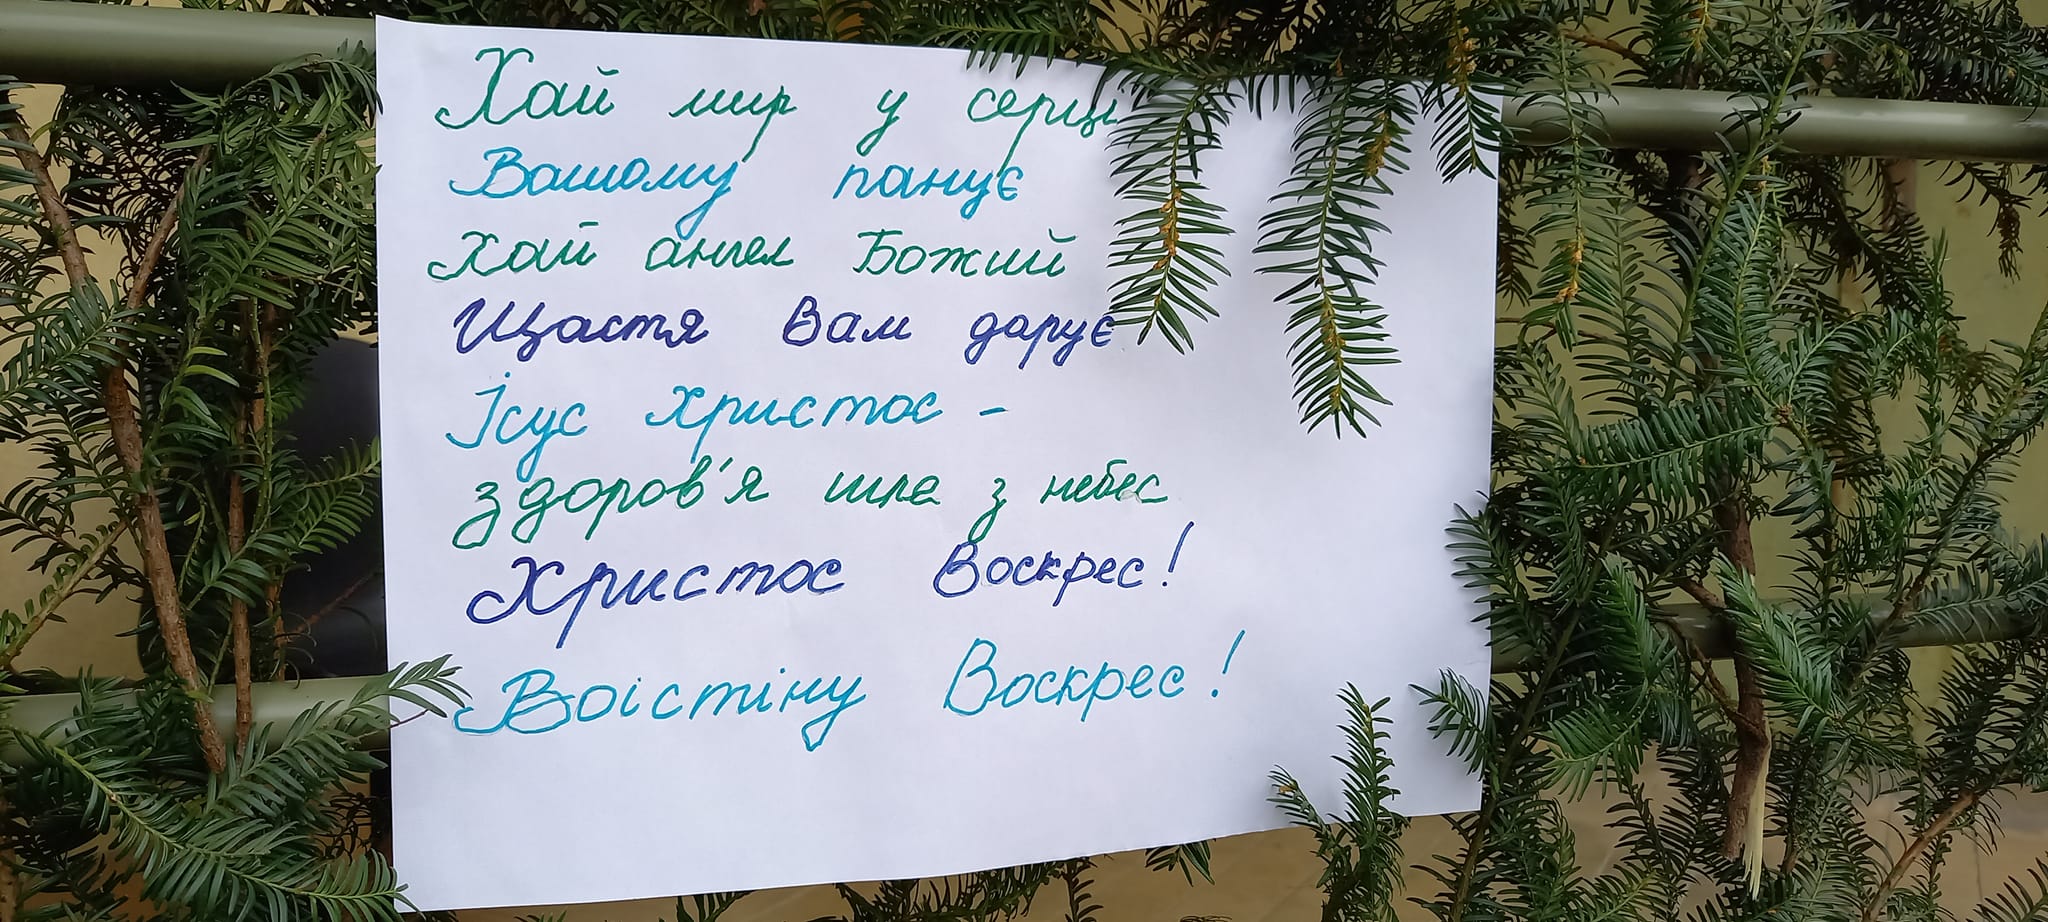 Хай мир у серці
Вашому панує
Хай ангел Божий
Щастя Вам дарує
Ісус Христос -
здоров'я шле з небес
Христос Воскрес!
Воістіну Воскрес!